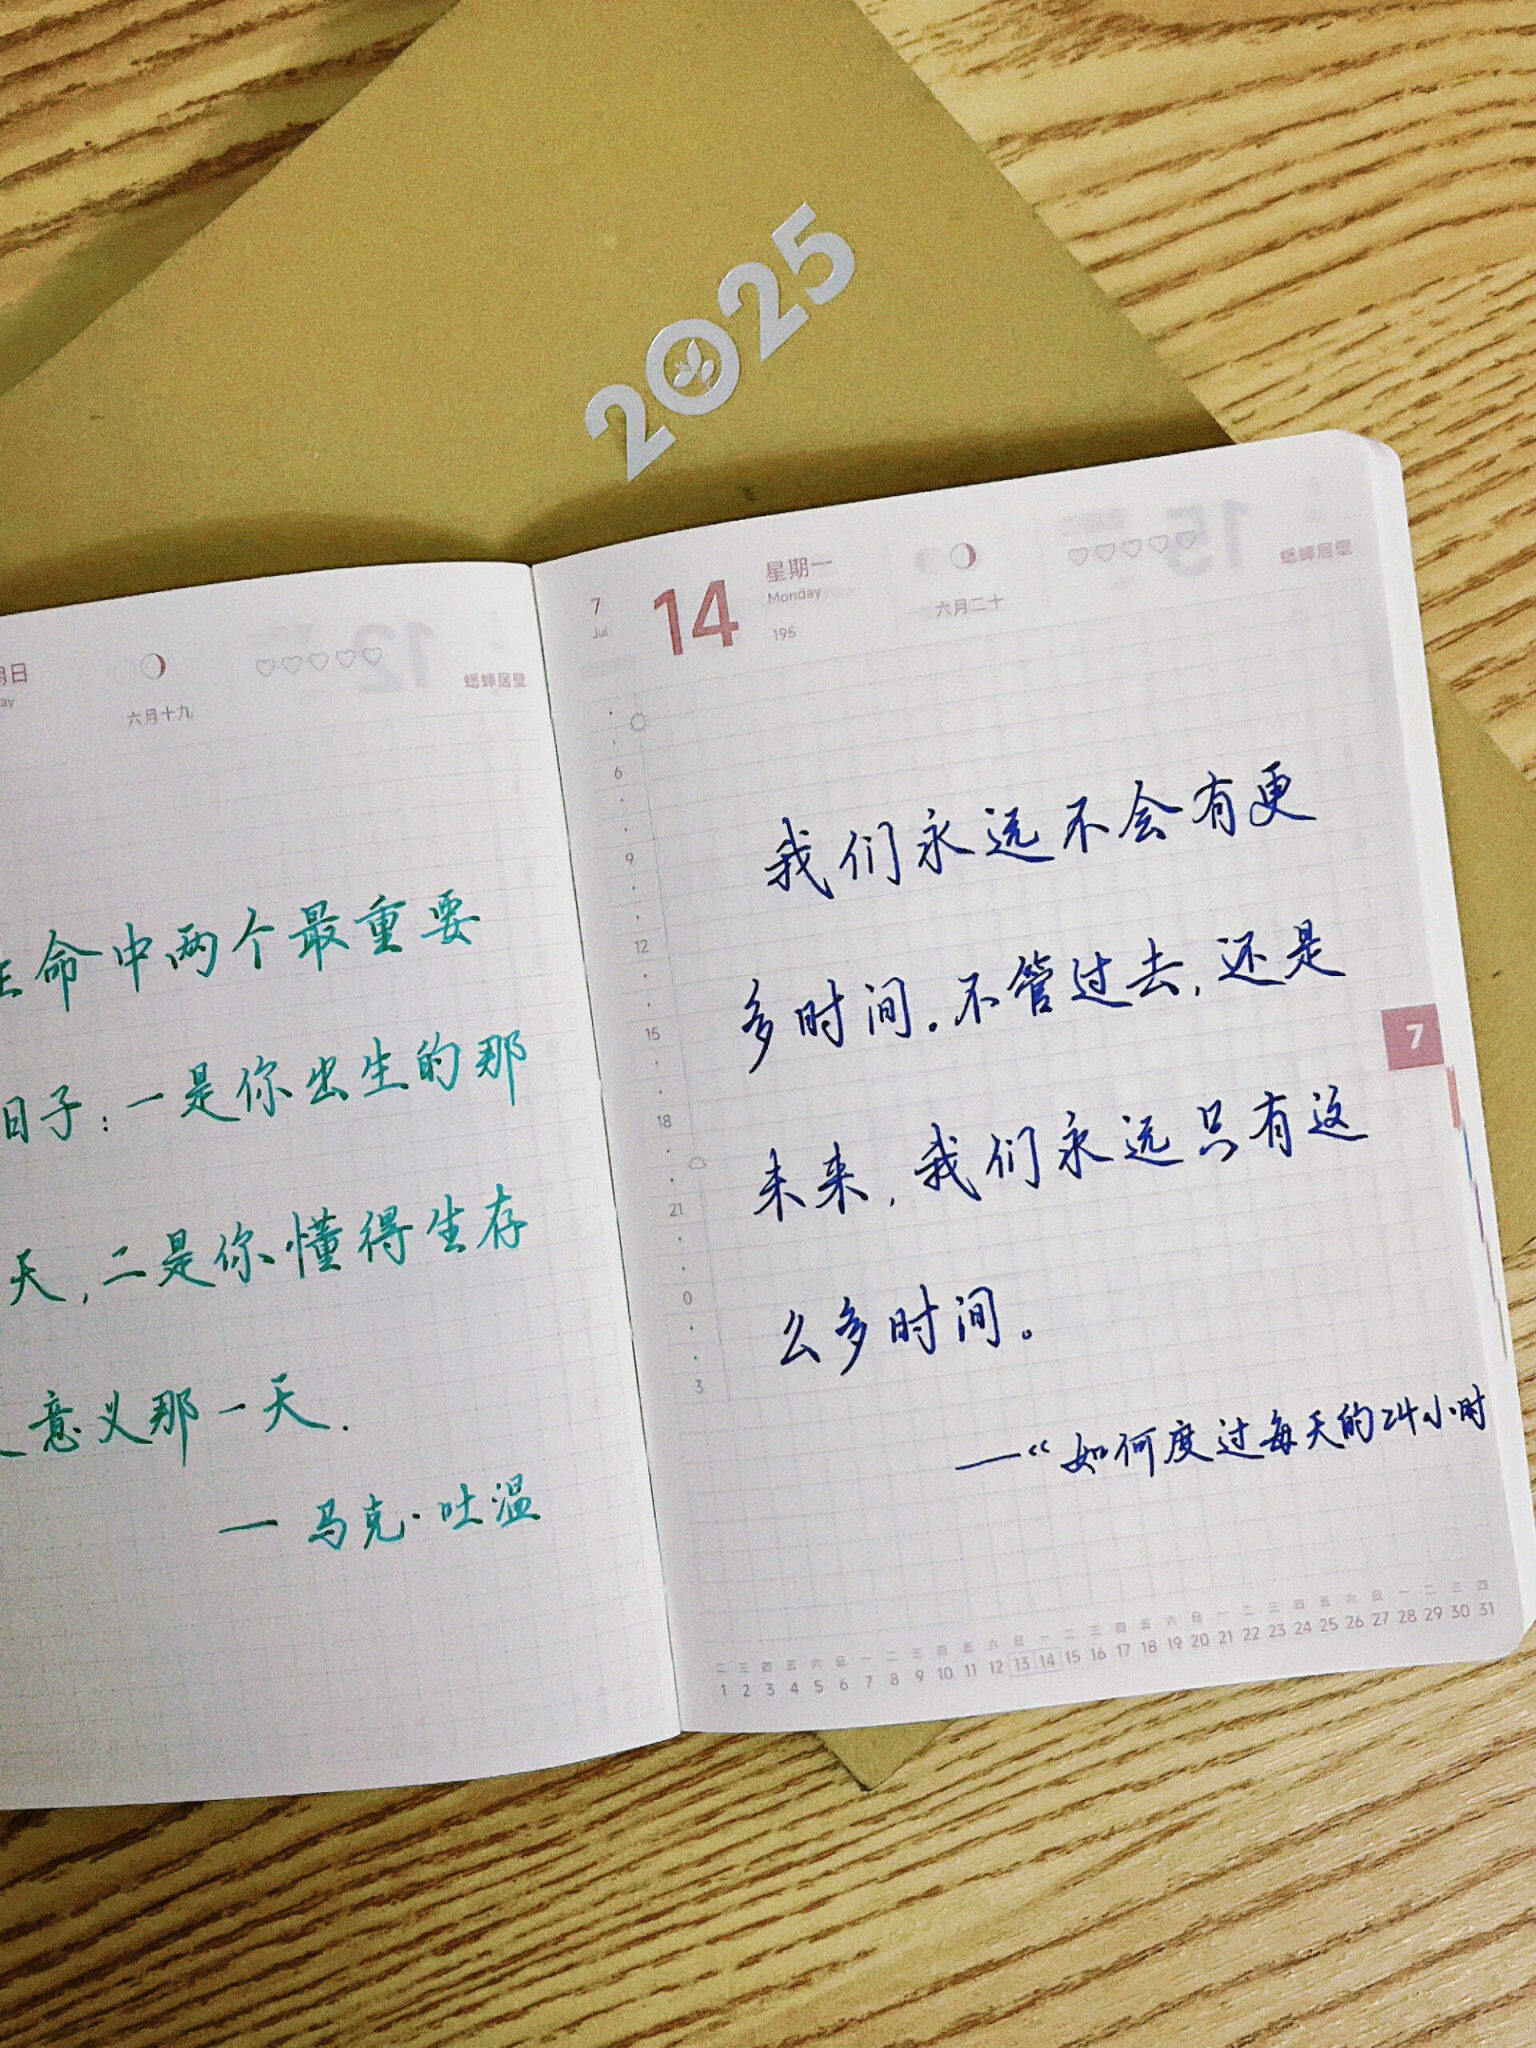 2025
日
ay
六月十九
♡♡♡♡♡
蟋蟀居壁
命中两个最重要
日子：一是你出生的那
天，二是你懂得生存
意义那一天.
— 马克·吐温
7
Jul
14
星期一
Monday
195
六月二十
♡♡♡♡♡
蟋蟀居壁
6
9
12
15
18
21
0
3
我们永远不会有更
多时间。不管过去，还是
未来，我们永远只有这
么多时间。
—“如何度过每天的24小时
7
二 三 四 五 六 日 一 二 三 四 五 六 日 一 二 三 四 五 六 日 一 二 三 四 五 六 日 一 二 三 四
1 2 3 4 5 6 7 8 9 10 11 12 13 14 15 16 17 18 19 20 21 22 23 24 25 26 27 28 29 30 31